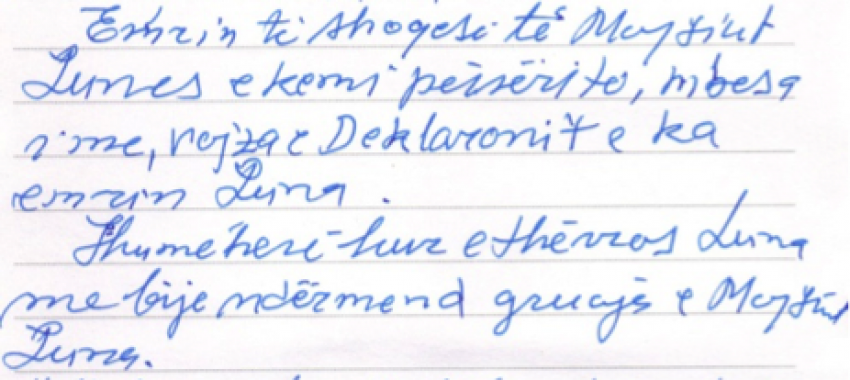 Emrin të shoqesë të Moysiut
Lunes e kemi përsërite, mbesa
ime, vajza e Deklaronit e ka
emrin Luna.
Shume herë kur e thërras Luna
me bije ndërmend gruaja e Moysiut
Luna.